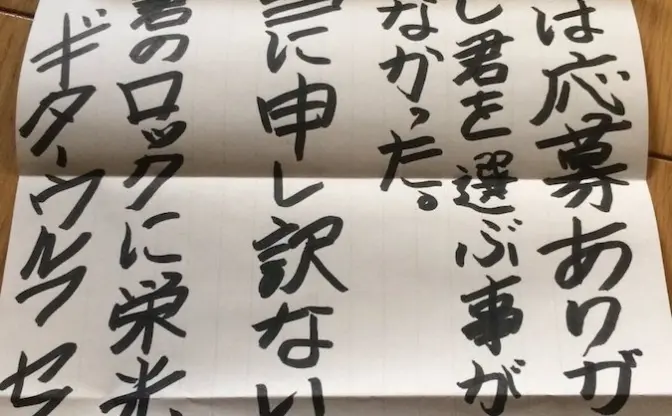 は応募ありガ
し君を選ぶ事が
なかった。
当に申し訳ない
君のロックに栄光
ギターウルフ セ